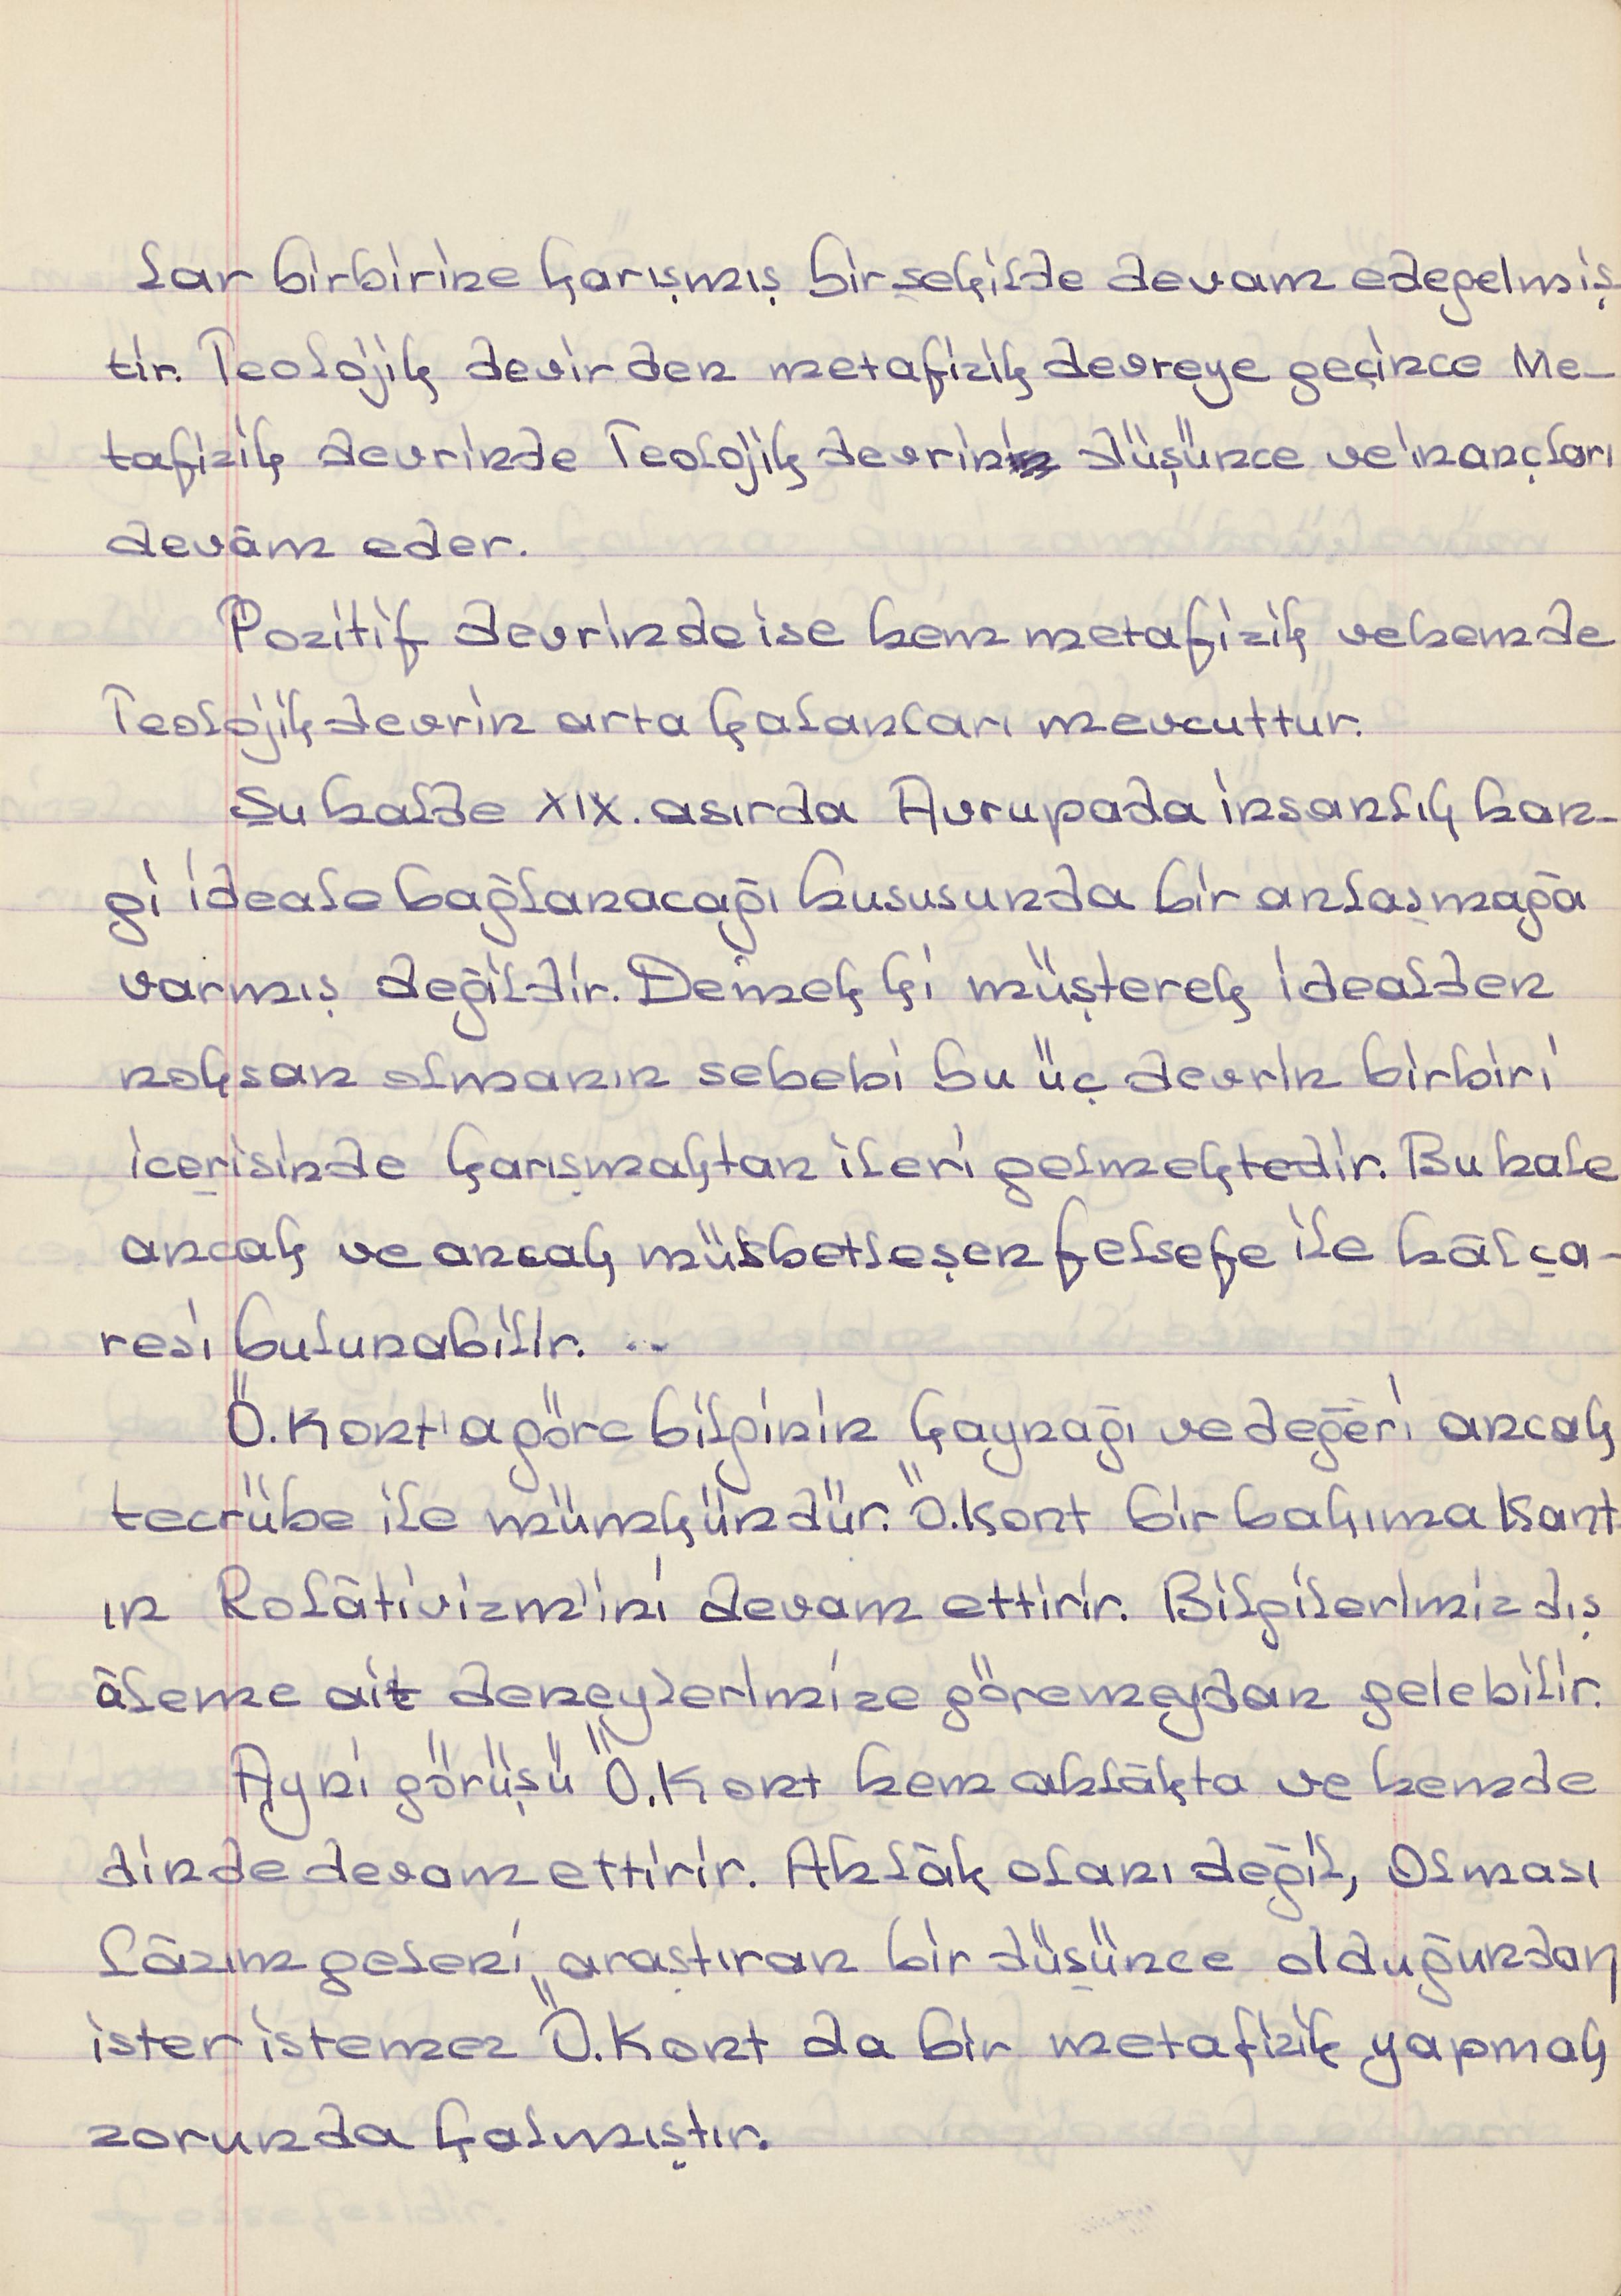 lar birbirine karışmış bir şekilde devam edegelmiş
tir. Teolojik devirden metafizik devreye geçince Me-
tafizik devrinde Teolojik devrin düşünce ve inançları
devâm eder.
Pozitif devrinde ise hem metafizik ve hemde
Teolojik devrin arta kalanları mevcuttur.
Şu halde XIX. asırda Avrupada insanlık han-
gi ideale bağlanacağı hususunda bir anlaşmağa
varmış değildir. Demek ki müşterek idealden
noksan olmanın sebebi bu üç devrin birbiri
içerisinde karışmaktan ileri gelmektedir. Bu hale
ancak ve ancak müsbetleşen felsefe ile hâl ça-
resi bulunabilir. ..
Ö. Kont'a göre bilginin kaynağı ve değeri ancak
tecrübe ile mümkündür. Ö. Kont bir bakıma Kant
ın Rolâtivizm'ini devam ettirir. Bilgilerimiz dış
âleme ait deneylerimize göre meydan gelebilir.
Ayni görüşü Ö. Kont hem ahlâkta ve hemde
dinde devam ettirir. Ahlâk olanı değil, Olması
lâzım geleni araştıran bir düşünce olduğundan
ister istemez Ö. Kont da bir metafizik yapmak
zorunda kalmıştır.